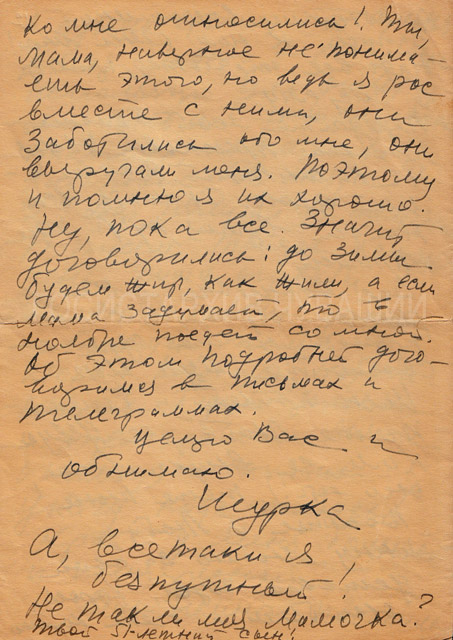 ко мне относились! Ты,
мама, наверное не понима-
ешь этого, но ведь я рос
вместе с ними, они
заботились обо мне, они
выручали меня. Поэтому
и помню я их хорошо.
Ну, пока все. Значит,
договорились: до зимы
будем жить, как жили, а если
мама задумает, то в
ноябре поедет со мной.
Об этом подробней дого-
воримся в письмах и
телеграммах.
Целую Вас и
обнимаю.
Шурка
А, всетаки я
безпутный!
Не так ли моя мамочка?
твой 51-летний сын!